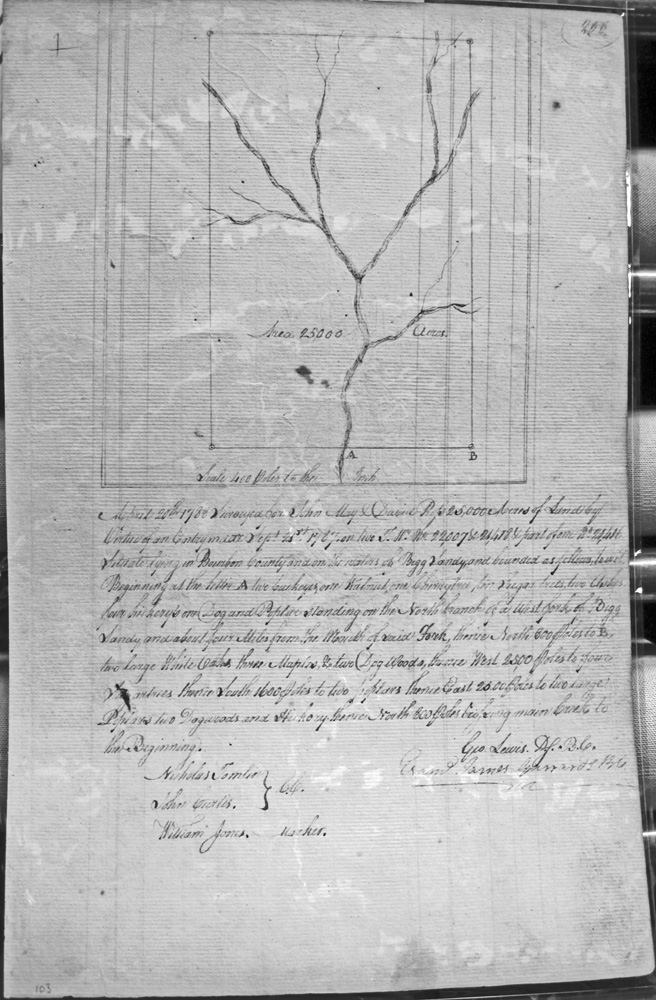 226
Area 25000 Acres.
A
B
Scale 400 Poles to the Inch
April 20th 1788 Surveyed for John May & David Ross 25,000 Acres of Land by
Virtue of an Entry made Sept. 21st 1787 on two T. Ws. No. 22007 & 21418 & part of one No. 21416
Situate lying in Bourbon County and on the waters of Bigg Sandy and bounded as follows, to wit
Beginning at the letter A two buckeyes, one Walnut, one Cherrytree, Sugar trees, two Ashes
four hickorys one Dog and Poplar standing on the North branch of a West fork of Bigg
Sandy and about four Miles from the Mouth of said Fork, thence North 800 Poles to B,
two large White Oaks, three Maples, & two Dogwoods, thence West 2500 Poles to four
thence South 1600 Poles to two Poplars thence East 2500 Poles to two large
Poplars two Dogwoods and Hickory thence North 800 Poles Crossing main Creek to
the Beginning.
Geo. Lewis. D.S. B.C.
Exam'd James Garrard S.B.C.
Nicholas Tomlin
John Curtis. } C.C.
William Jones. Marker.
103